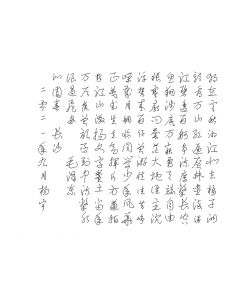 独立寒秋湘江北去橘子洲
头看万山红遍层林尽染漫
江碧透百舸争流鹰击长空
鱼翔浅底万类霜天竞自由
怅寥廓问苍茫大地谁主沉
浮携来百侣曾游忆往昔峥
嵘岁月稠恰同学少年风华
正茂书生意气挥斥方遒指
点江山激扬文字粪土当年
万户侯曾记否到中流击水
浪遏飞舟 毛泽东
沁园春 长沙
二零二一年九月杨宇